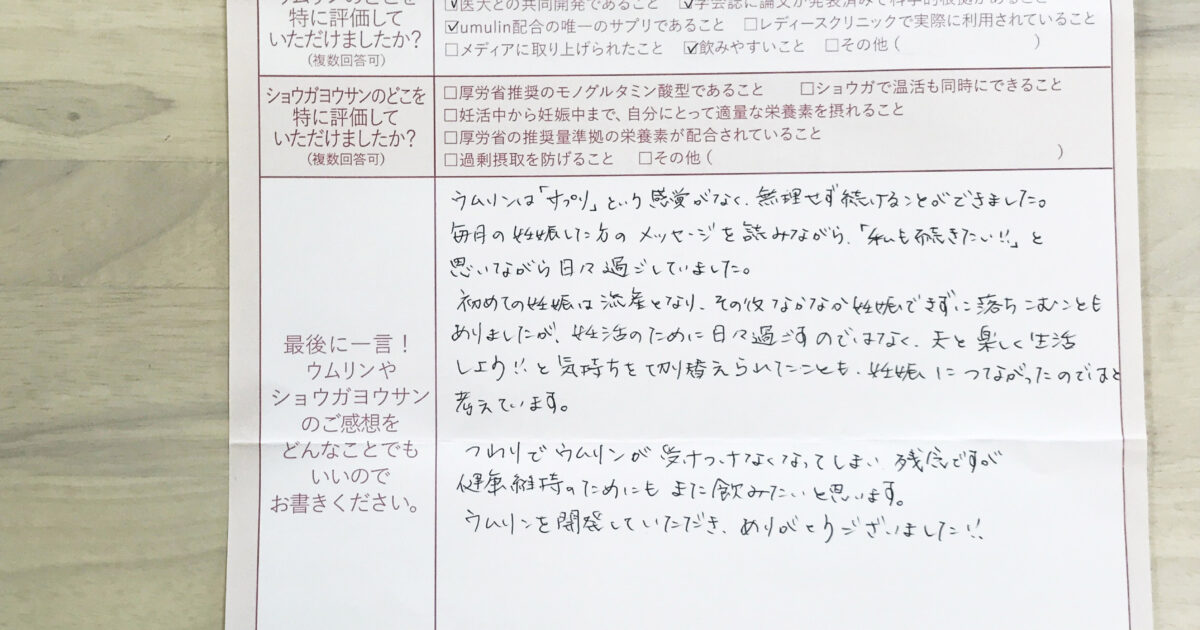 ウムリンのどこを
特に評価して
いただけましたか?
(複数回答可)
☑医大との共同開発であること ☑学会誌に論文が発表済みで科学的根拠があること
☑umulin配合の唯一のサプリであること □レディースクリニックで実際に利用されていること
□メディアに取り上げられたこと ☑飲みやすいこと □その他( )
ショウガヨウサンのどこを
特に評価して
いただけましたか?
(複数回答可)
□厚労省推奨のモノグルタミン酸型であること □ショウガで温活も同時にできること
□妊活中から妊娠中まで、自分にとって適量な栄養素を摂れること
□厚労省の推奨量準拠の栄養素が配合されていること
□過剰摂取を防げること □その他( )
最後に一言!
ウムリンや
ショウガヨウサン
のご感想を
どんなことでも
いいので
お書きください。
ウムリンは「サプリ」という感覚がなく、無理せず続けることができました。
毎月の妊娠した方のメッセージを読みながら、「私も続きたい!!」と
思いながら日々過ごしていました。
初めての妊娠は流産となり、その後なかなか妊娠できずに落ちこむことも
ありましたが、妊活のために日々過ごすのではなく、夫と楽しく生活
しよう!!と気持ちを切り替えられたことも、妊娠につながったのではと
考えています。
つわりでウムリンが受けつけなくなってしまい、残念ですが
健康維持のためにもまた飲みたいと思います。
ウムリンを開発していただき、ありがとうございました!!